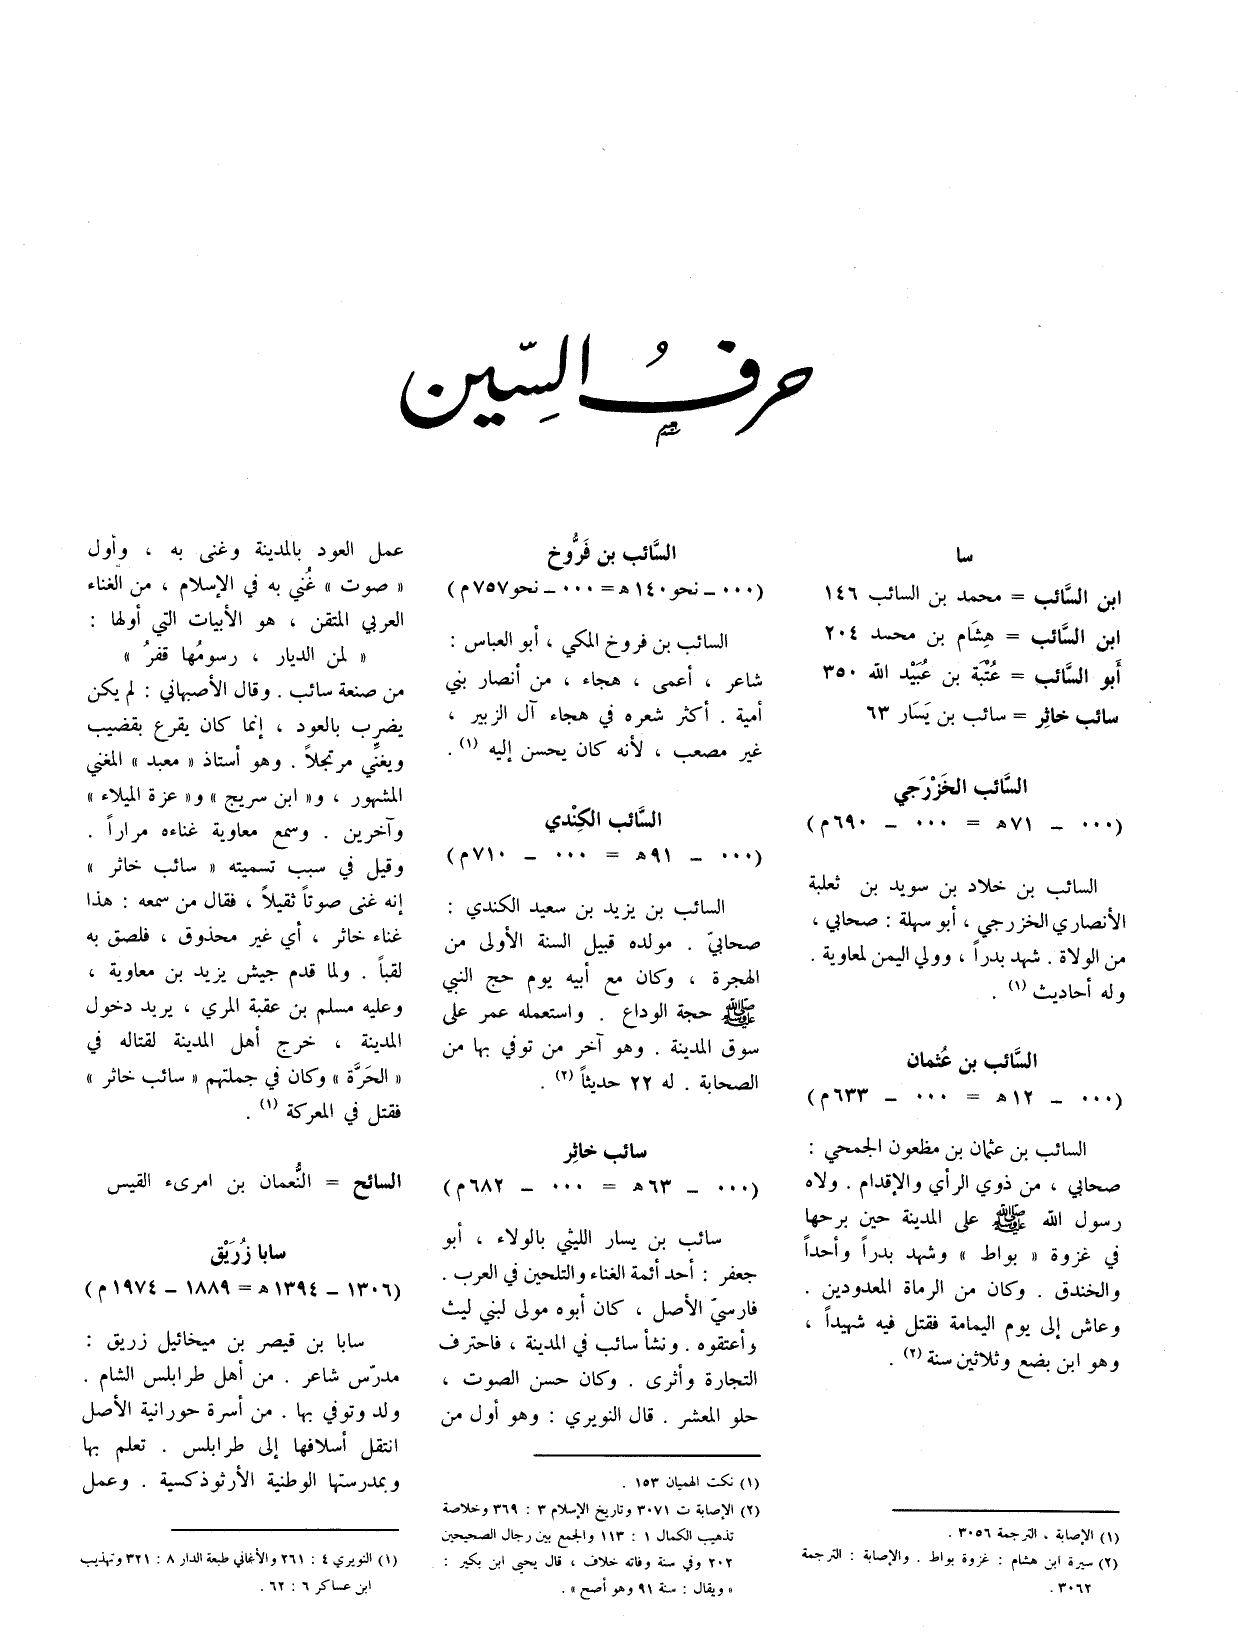 حرفُ السِّين
سا
ابن السَّائب = محمد بن السائب ١٤٦
ابن السَّائب = هِشَام بن محمد ٢٠٤
أَبو السَّائب = عُتْبَة بن عُبَيْد الله ٣٥٠
سائب خاثِر = سائب بن يَسَار ٦٣
السَّائب الخَزْرَجي
(٠٠٠ ــ ٧١ه = ٠٠٠ ــ ٦٩٠م)
السائب بن خلاد بن سويد بن ثعلبة
الأنصاري الخزرجي ، أبو سهلة : صحابي ،
من الولاة . شهد بدراً ، وولي اليمن لمعاوية .
وله أحاديث (١) .
السَّائب بن عُثمان
(٠٠٠ ــ ١٢ه = ٠٠٠ ــ ٦٣٣م)
السائب بن عثمان بن مظعون الجمحي :
صحابي ، من ذوي الرأي والإقدام . ولاه
رسول الله ﷺ على المدينة حين برحها
في غزوة « بواط » وشهد بدراً وأحداً
والخندق . وكان من الرماة المعدودين .
وعاش إلى يوم اليمامة فقتل فيه شهيداً ،
وهو ابن بضع وثلاثين سنة (٢) .
(١) الإصابة ، الترجمة ٣٠٥٦ .
(٢) سيرة ابن هشام : غزوة بواط . والإصابة : الترجمة
٣٠٦٢ .
السَّائب بن فَرُّوخ
(٠٠٠ ــ نحو ١٤٠ه = ٠٠٠ ــ نحو ٧٥٧م)
السائب بن فروخ المكي ، أبو العباس :
شاعر ، أعمى ، هجاء ، من أنصار بني
أمية . أكثر شعره في هجاء آل الزبير ،
غير مصعب ، لأنه كان يحسن إليه (١) .
السَّائب الكِنْدي
(٠٠٠ ــ ٩١ه = ٠٠٠ ــ ٧١٠م)
السائب بن يزيد بن سعيد الكندي :
صحابيّ . مولده قبيل السنة الأولى من
الهجرة ، وكان مع أبيه يوم حج النبي
ﷺ حجة الوداع . واستعمله عمر على
سوق المدينة . وهو آخر من توفي بها من
الصحابة . له ٢٢ حديثاً (٢) .
سائب خاثِر
(٠٠٠ ــ ٦٣ه = ٠٠٠ ــ ٦٨٢م)
سائب بن يسار الليثي بالولاء ، أبو
جعفر : أحد أئمة الغناء والتلحين في العرب .
فارسيّ الأصل ، كان أبوه مولى لبني ليث
وأعتقوه . ونشأ سائب في المدينة ، فاحترف
التجارة وأثرى . وكان حسن الصوت ،
حلو المعشر . قال النويري : وهو أول من
(١) نكت الهميان ١٥٣ .
(٢) الإصابة ت ٣٠٧١ وتاريخ الإسلام ٣ : ٣٦٩ وخلاصة
تذهيب الكمال ١ : ١١٣ والجمع بين رجال الصحيحين
٢٠٢ وفي سنة وفاته خلاف ، قال يحيى ابن بكير :
« ويقال : سنة ٩١ وهو أصح » .
عمل العود بالمدينة وغنى به ، وأول
« صوت » غُني به في الإسلام ، من الغناء
العربي المتقن ، هو الأبيات التي أولها :
« لمن الديار ، رسومُها قفرُ »
من صنعة سائب . وقال الأصبهاني : لم يكن
يضرب بالعود ، إنما كان يقرع بقضيب
ويغنِّي مرتجلاً . وهو أستاذ « معبد » المغني
المشهور ، و« ابن سريج » و« عزة الميلاء »
وآخرين . وسمع معاوية غناءه مراراً .
وقيل في سبب تسميته « سائب خاثر »
إنه غنى صوتاً ثقيلاً ، فقال من سمعه : هذا
غناء خاثر ، أي غير محذوق ، فلصق به
لقباً . ولما قدم جيش يزيد بن معاوية ،
وعليه مسلم بن عقبة المري ، يريد دخول
المدينة ، خرج أهل المدينة لقتاله في
« الحَرَّة » وكان في جملتهم « سائب خاثر »
فقتل في المعركة (١) .
السائح = النُّعمان بن امرىء القيس
سابا زُرَيْق
(١٣٠٦ ــ ١٣٩٤ه = ١٨٨٩ ــ ١٩٧٤م)
سابا بن قيصر بن ميخائيل زريق :
مدرّس شاعر . من أهل طرابلس الشام .
ولد وتوفي بها . من أسرة حورانية الأصل
انتقل أسلافها إلى طرابلس . تعلم بها
وبمدرستها الوطنية الأرثوذكسية . وعمل
(١) النويري ٤ : ٢٦١ والأغاني طبعة الدار ٨ : ٣٢١ وتهذيب
ابن عساكر ٦ : ٦٢ .